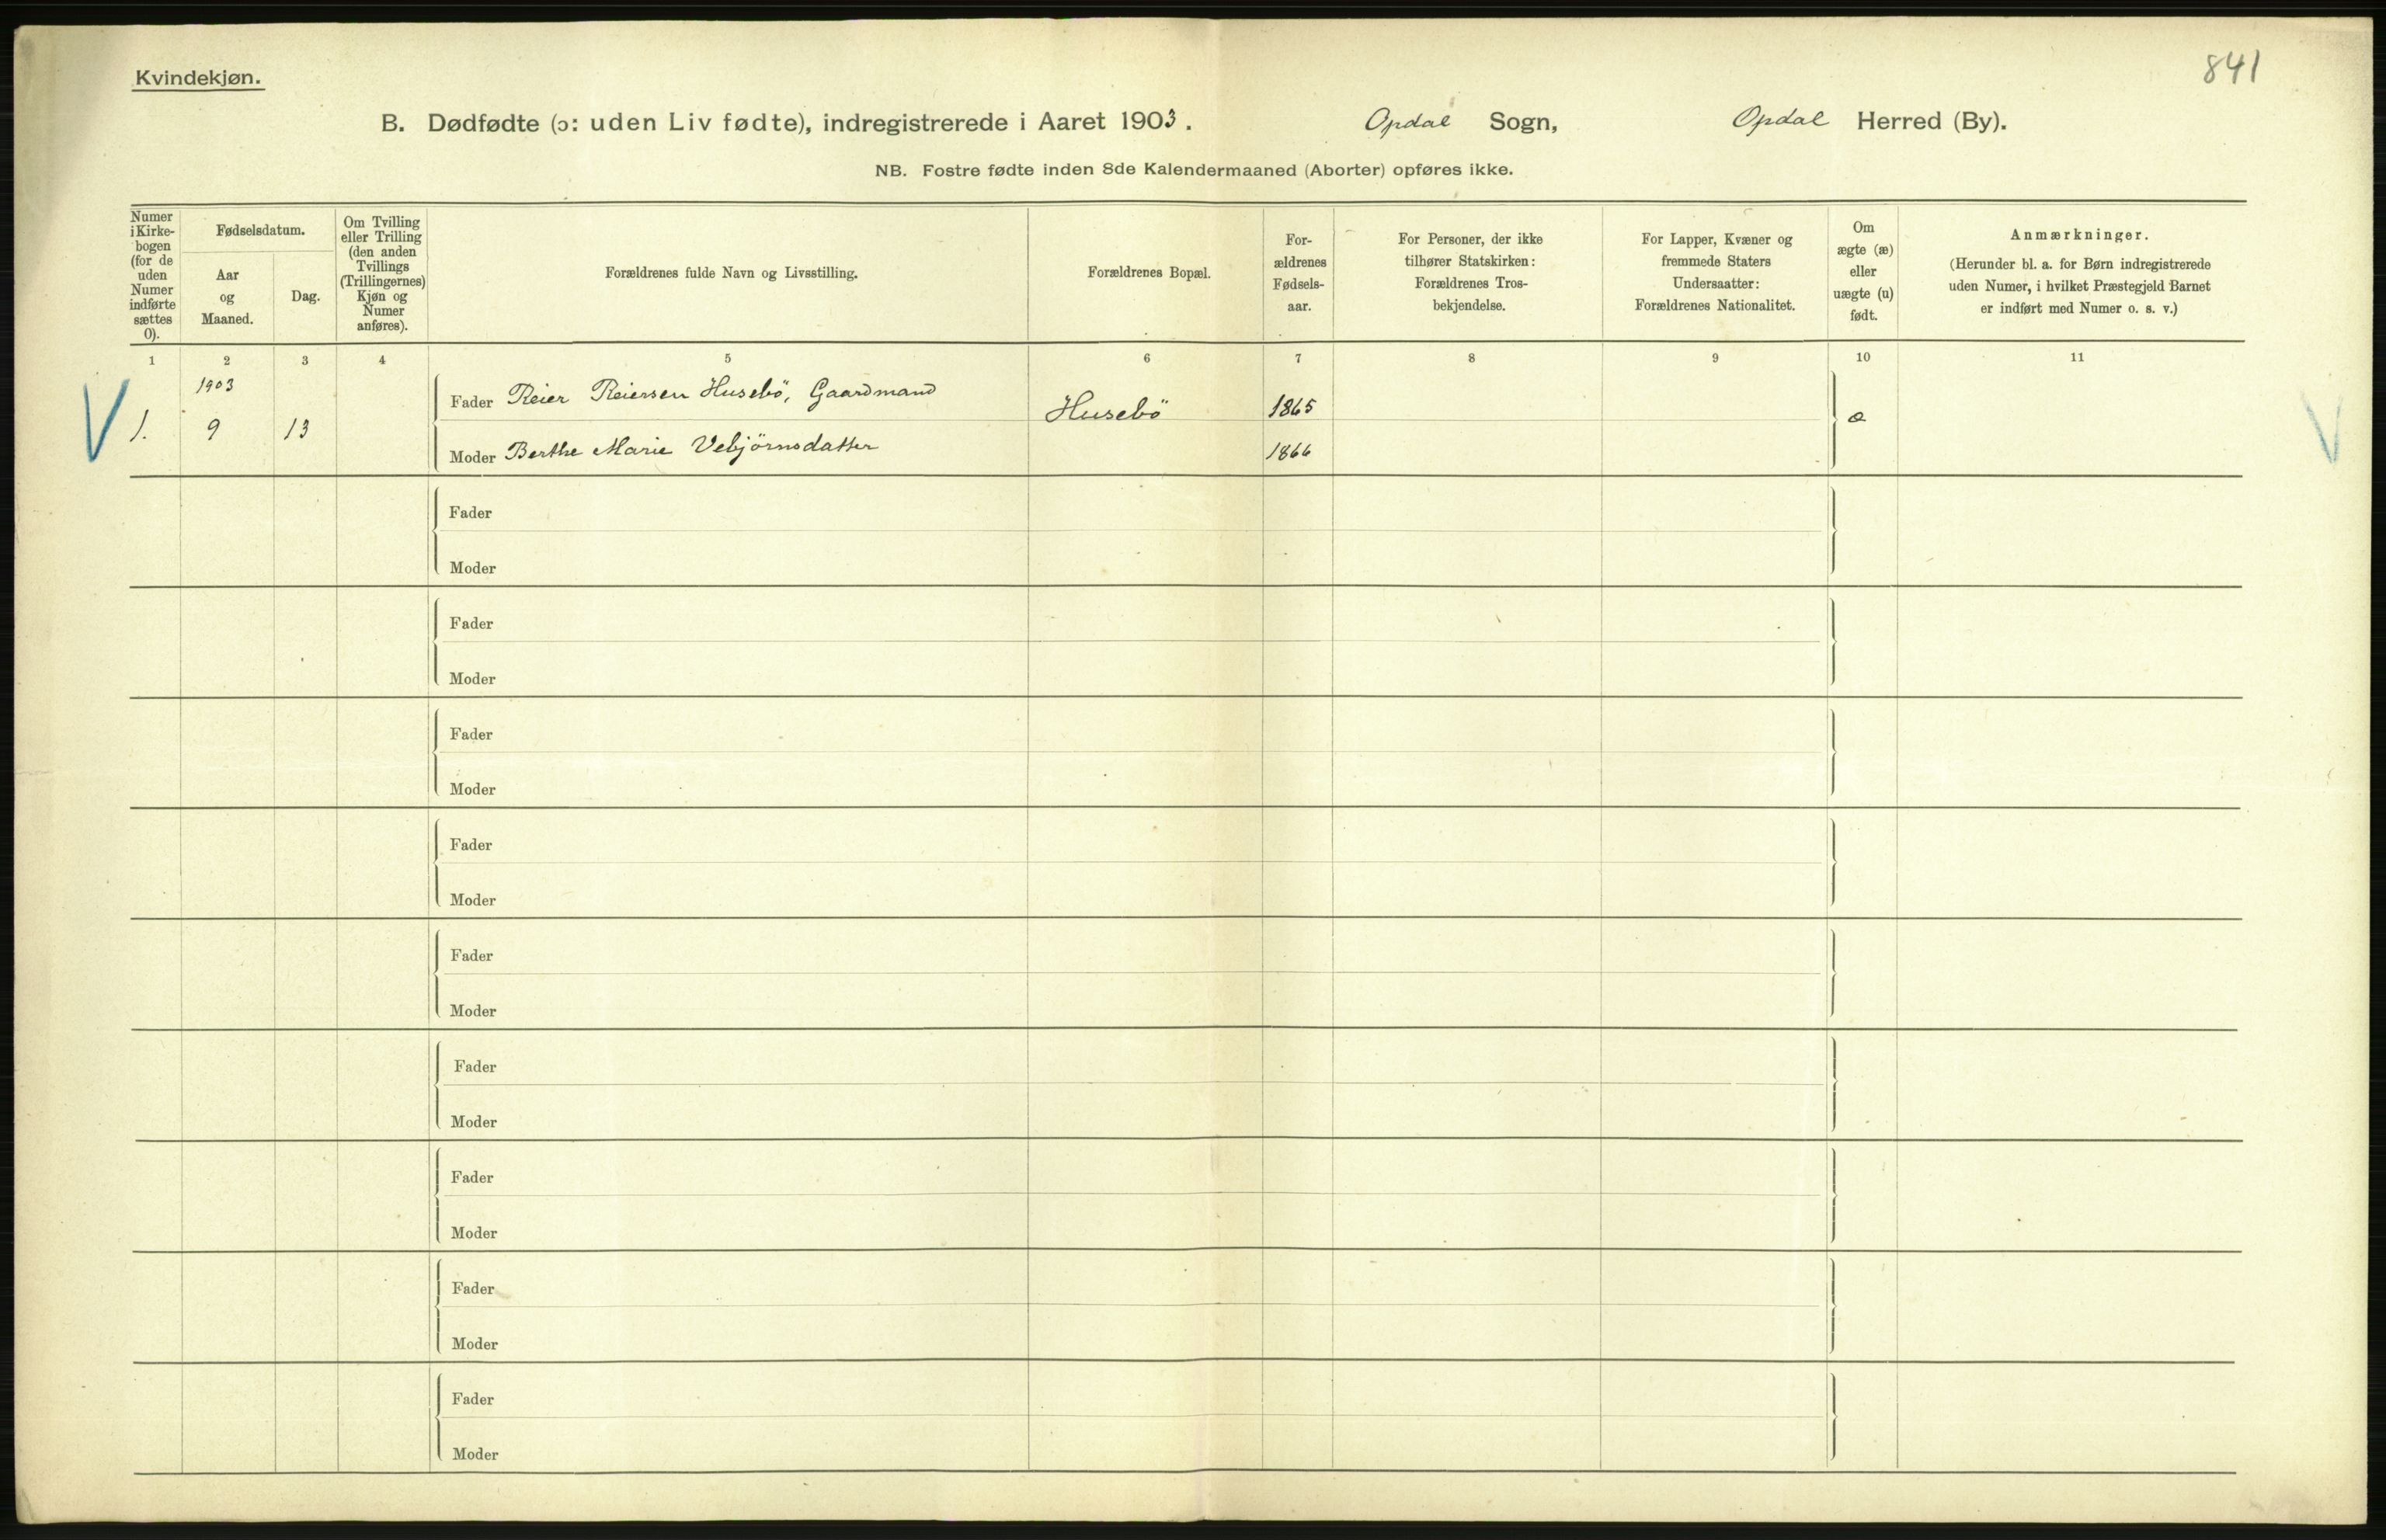 Kvindekjøn.
841
B. Dødfødte (ɔ: uden Liv fødte), indregistrerede i Aaret 1903. Opdal Sogn, Opdal Herred (By).
NB. Fostre fødte inden 8de Kalendermaaned (Aborter) opføres ikke.
Numer
i Kirke-
bogen
(for de
uden
Numer
indførte
sættes
0).
Fødselsdatum.
Aar
og
Maaned.
Dag.
Om Tvilling
eller Trilling
(den anden
Tvillings
(Trillingernes)
Kjøn og
Numer
anføres).
Forældrenes fulde Navn og Livsstilling.
Forældrenes Bopæl.
For-
ældrenes
Fødsels-
aar.
For Personer, der ikke
tilhører Statskirken:
Forældrenes Tros-
bekjendelse.
For Lapper, Kvæner og
fremmede Staters
Undersaatter:
Forældrenes Nationalitet.
Om
ægte (æ)
eller
uægte (u)
født.
Anmærkninger.
(Herunder bl. a. for Børn indregistrerede
uden Numer, i hvilket Præstegjeld Barnet
er indført med Numer o. s. v.)
1 2 3 4 5 6 7 8 9 10 11
1903
Fader Reier Reiersen Husebö, Gaardmand Husebö 1865
1. 9 13 æ
Moder Berthe Marie Vebjörnsdatter 1866
Fader
Moder
Fader
Moder
Fader
Moder
Fader
Moder
Fader
Moder
Fader
Moder
Fader
Moder
Fader
Moder
Fader
Moder